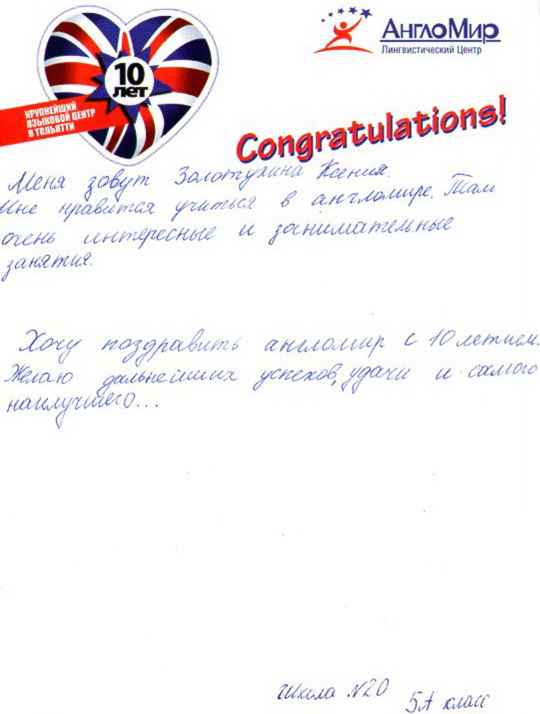 10
лет
КРУПНЕЙШИЙ
ЯЗЫКОВОЙ ЦЕНТР
В ТОЛЬЯТТИ
АнглоМир
Лингвистический Центр
Congratulations!
Меня зовут Золотухина Ксения.
Мне нравится учиться в англомире. Там
очень интересные и занимательные
занятия.
Хочу поздравить англомир с 10 летием.
Желаю дальнейших успехов, удачи и самого
наилучшего...
Школа N20 5А класс